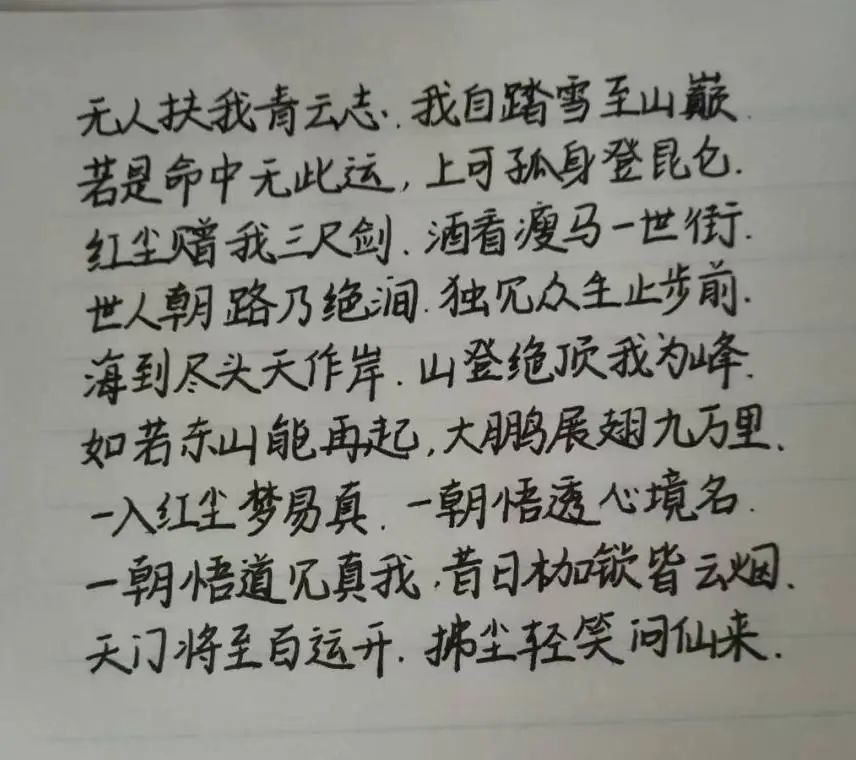 无人扶我青云志.我自踏雪至山巅
若是命中无此运,上可孤身登昆仑.
红尘赠我三尺剑.酒看瘦马一世街.
世人朝路乃绝涧.独见众生止步前.
海到尽头天作岸.山登绝顶我为峰.
如若东山能再起,大鹏展翅九万里.
一入红尘梦易真.一朝悟透心境名.
一朝悟道见真我.昔日枷锁皆云烟.
天门将至百运开.拂尘轻笑问仙来.